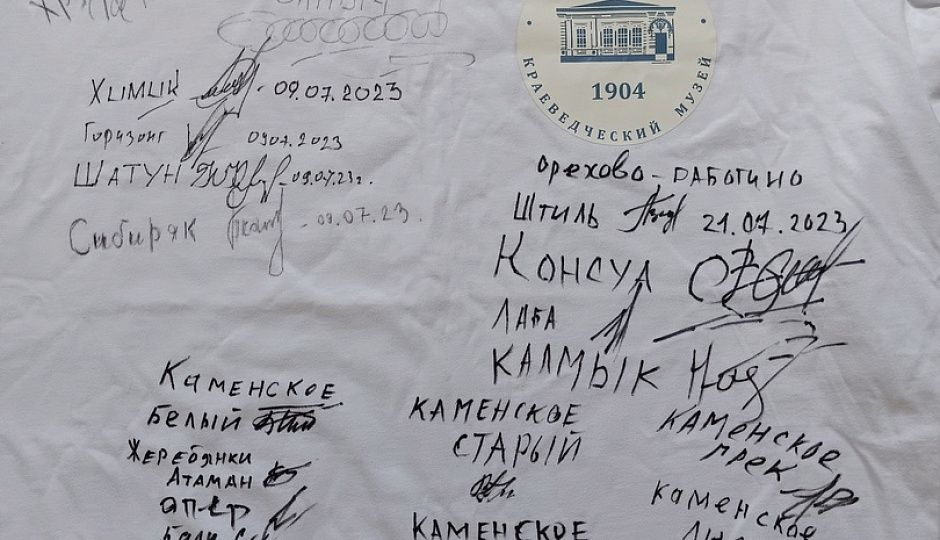 КРАЕВЕДЧЕСКИЙ МУЗЕЙ
1904
ХИМИК 09.07.2023
Горизонт 09.07.2023
ШАТУН 09.07.23г.
Сибиряк 09.07.23.
Орехово-Работино
Штиль 21.07.2023
Консул
Лаба
КАЛМЫК
Каменское
Белый
Жеребянки
Атаман
Опер
КАМЕНСКОЕ
СТАРЫЙ
КАМЕНСКОЕ
КАМЕНСКОЕ
ПРЕК
Каменское